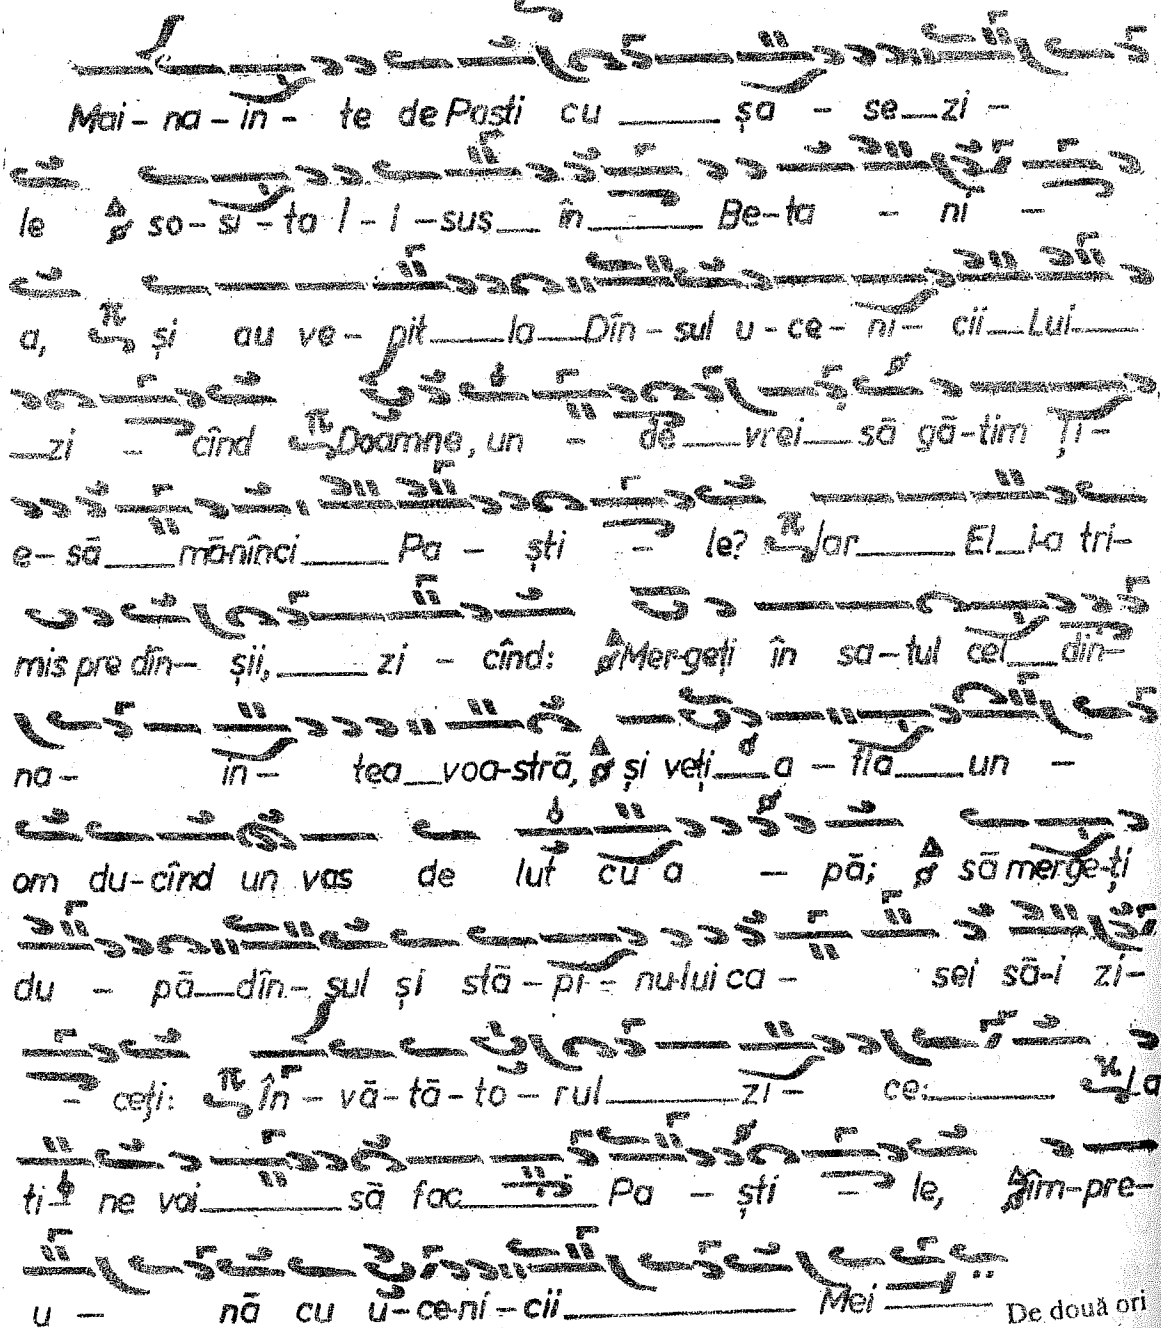 Mai - na - in - te de Paști cu ____ șa - se__zi -
le so - si - ta I - i - sus__ în____ Be - ta - ni -
a, și au ve - pit____la__Dîn - sul u - ce - ni - cii__Lui___
__zi - cînd Doamne, un - de___vrei__să gă - tim Ți -
e - să___mănînci____ Pa - ști - le? Iar____ El__i-a tri -
mis pre dîn - șii,____ zi - cînd: Mer-geți în sa - tul cel__din -
na - in - tea__voa-stră, și veți__a - fla___un -
om du - cînd un vas de lut cu a - pă; să mer-ge-ți
du - pă__dîn - sul și stă - pî - nu-lui ca - sei să-i zi -
- ceți: În - vă - tă - to - rul_____zi - ce:_____ La
ti - ne voi_____să fac_____ Pa - ști - le, îm-pre-
u - nă cu u - ce-ni - cii_________ Mei ____ De două ori